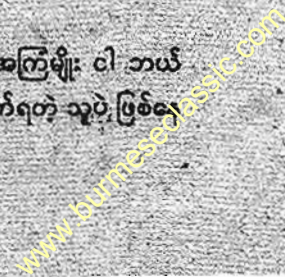 အကြံမျိုး ငါ ဘယ်
က်ရတဲ့ သူပဲ ဖြစ်နေ
www.burmeseclassic.com